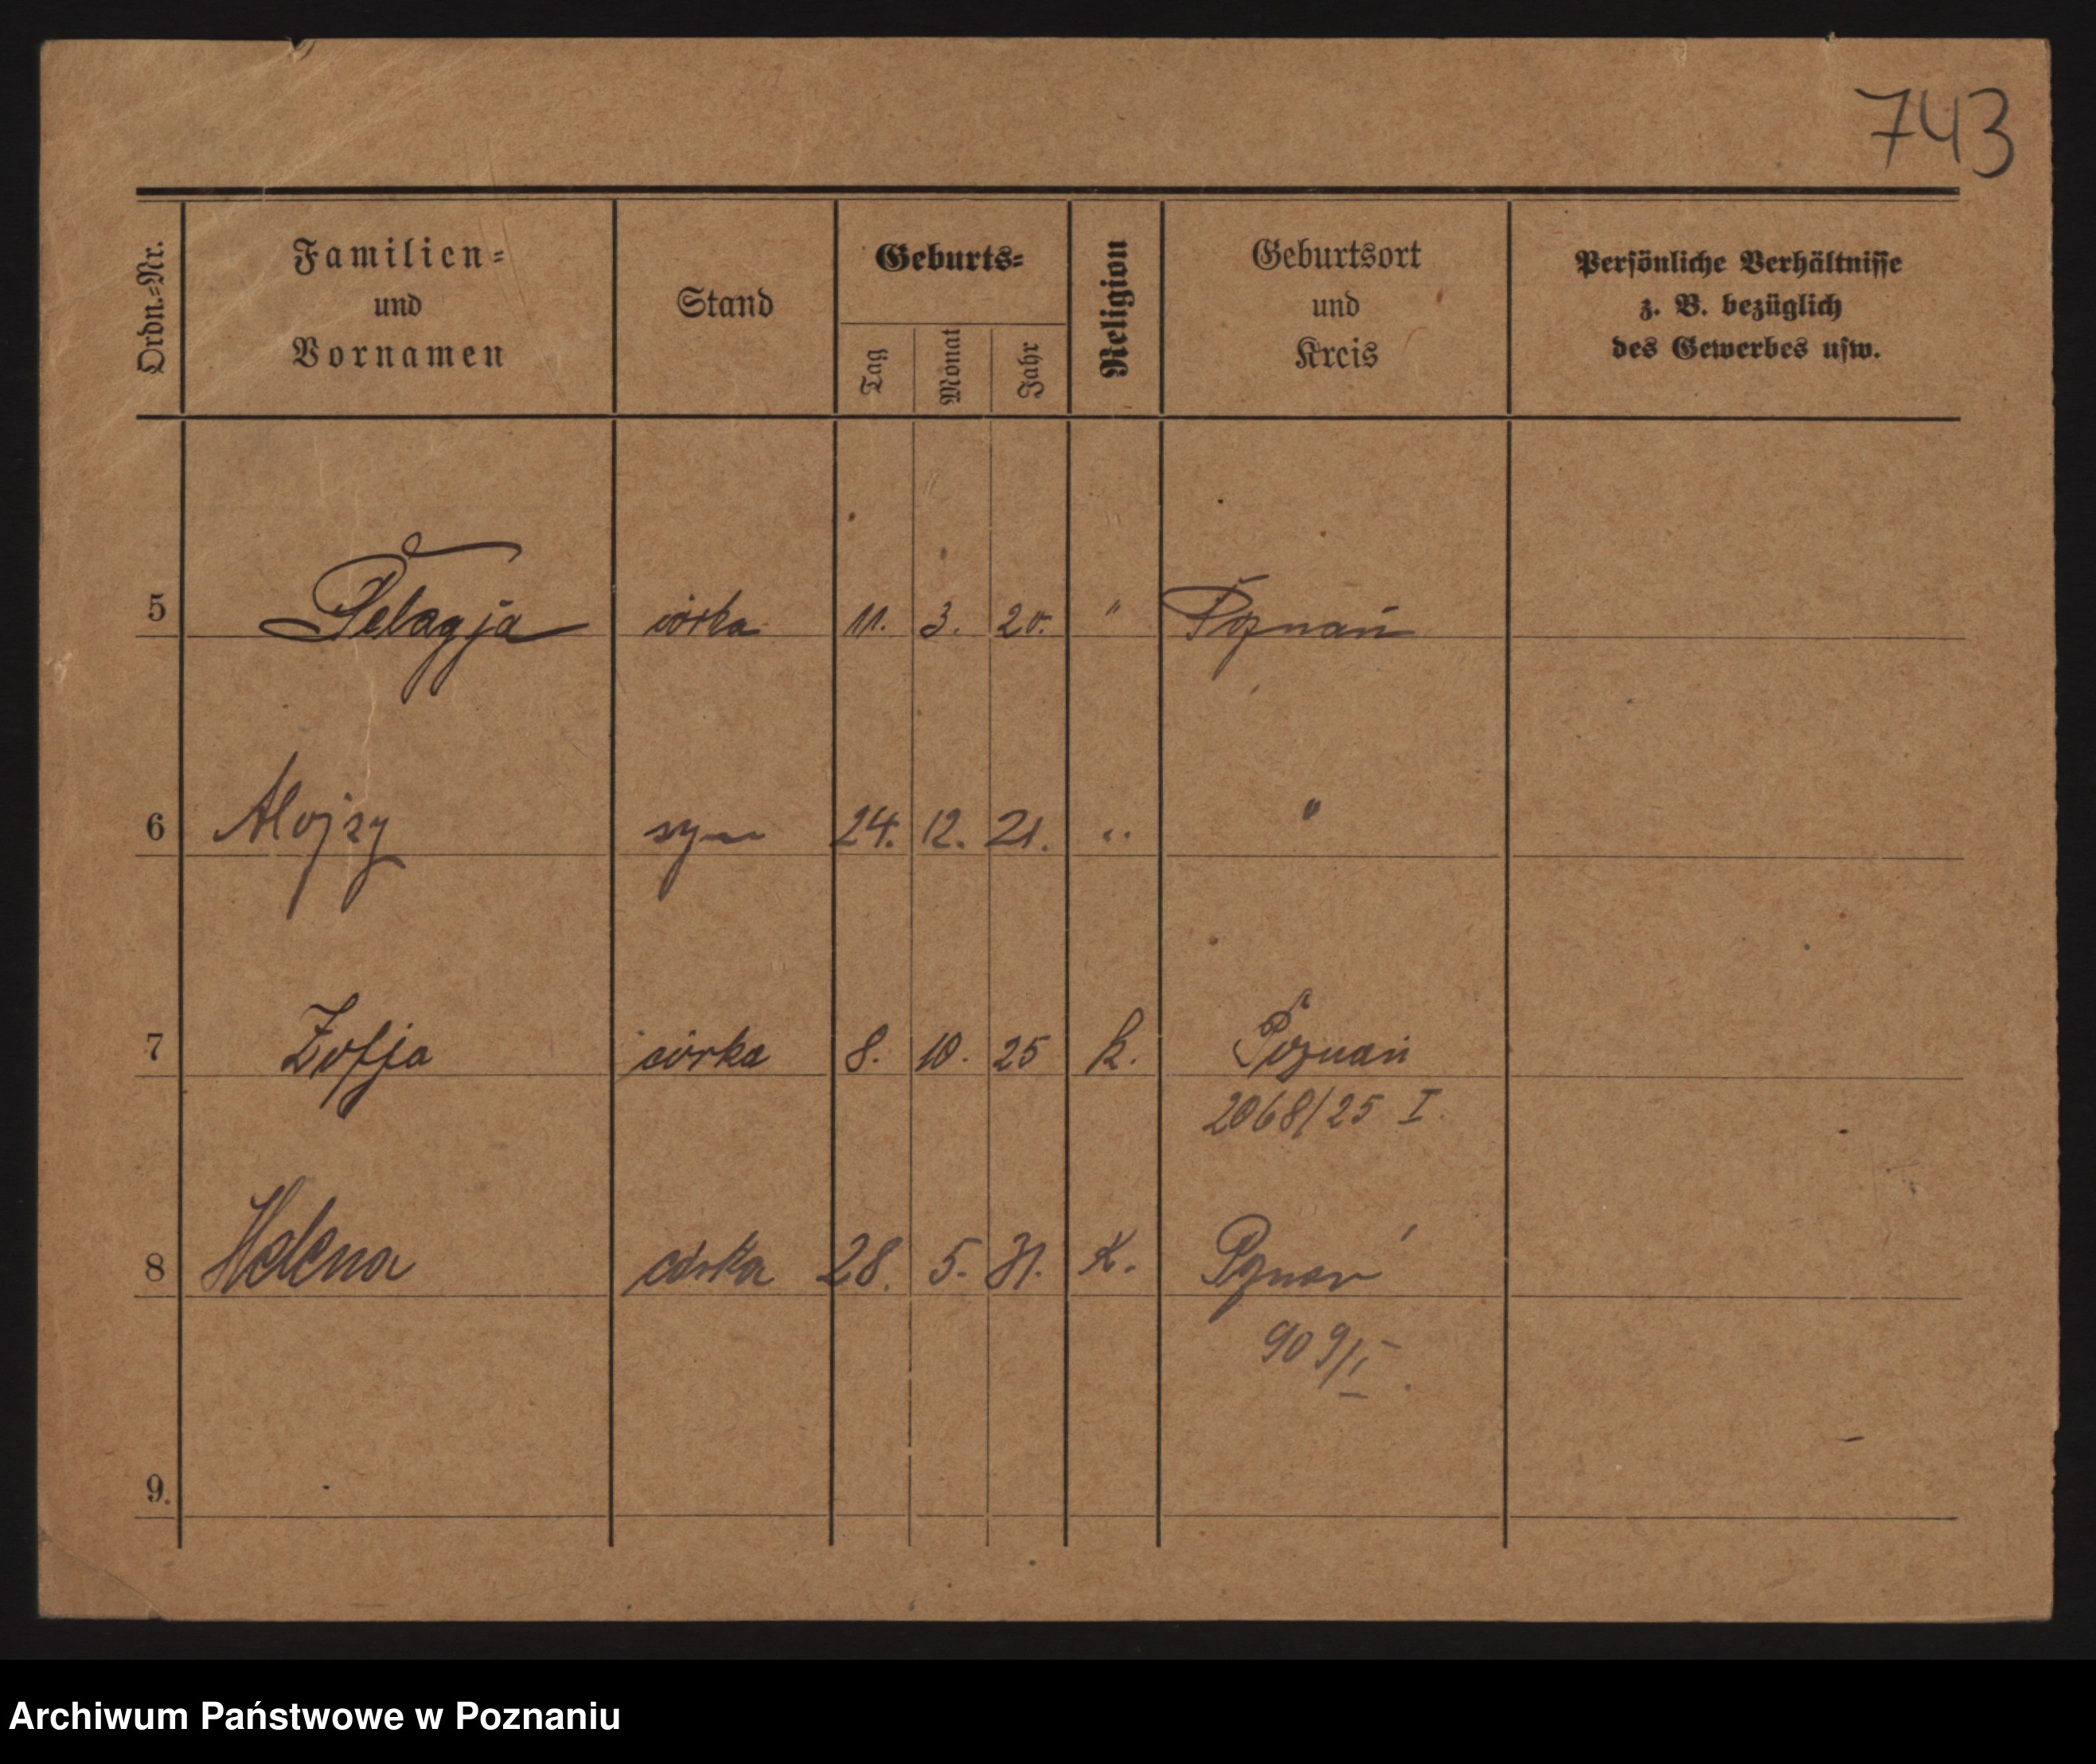 743
Ordn.-Nr. Familien- und Vornamen Stand Geburts- Tag Monat Jahr Religion Geburtsort und Kreis Persönliche Verhältnisse z. B. bezüglich des Gewerbes usw.
5 Pelagja córka 11. 3. 20. " Poznań
6 Alojzy syn 24. 12. 21. " "
7 Zofja córka 8. 10. 25 k. Poznań
2068/25 I.
8 Helena córka 28. 5. 31. K. Poznań
909/I.
9.
Archiwum Państwowe w Poznaniu